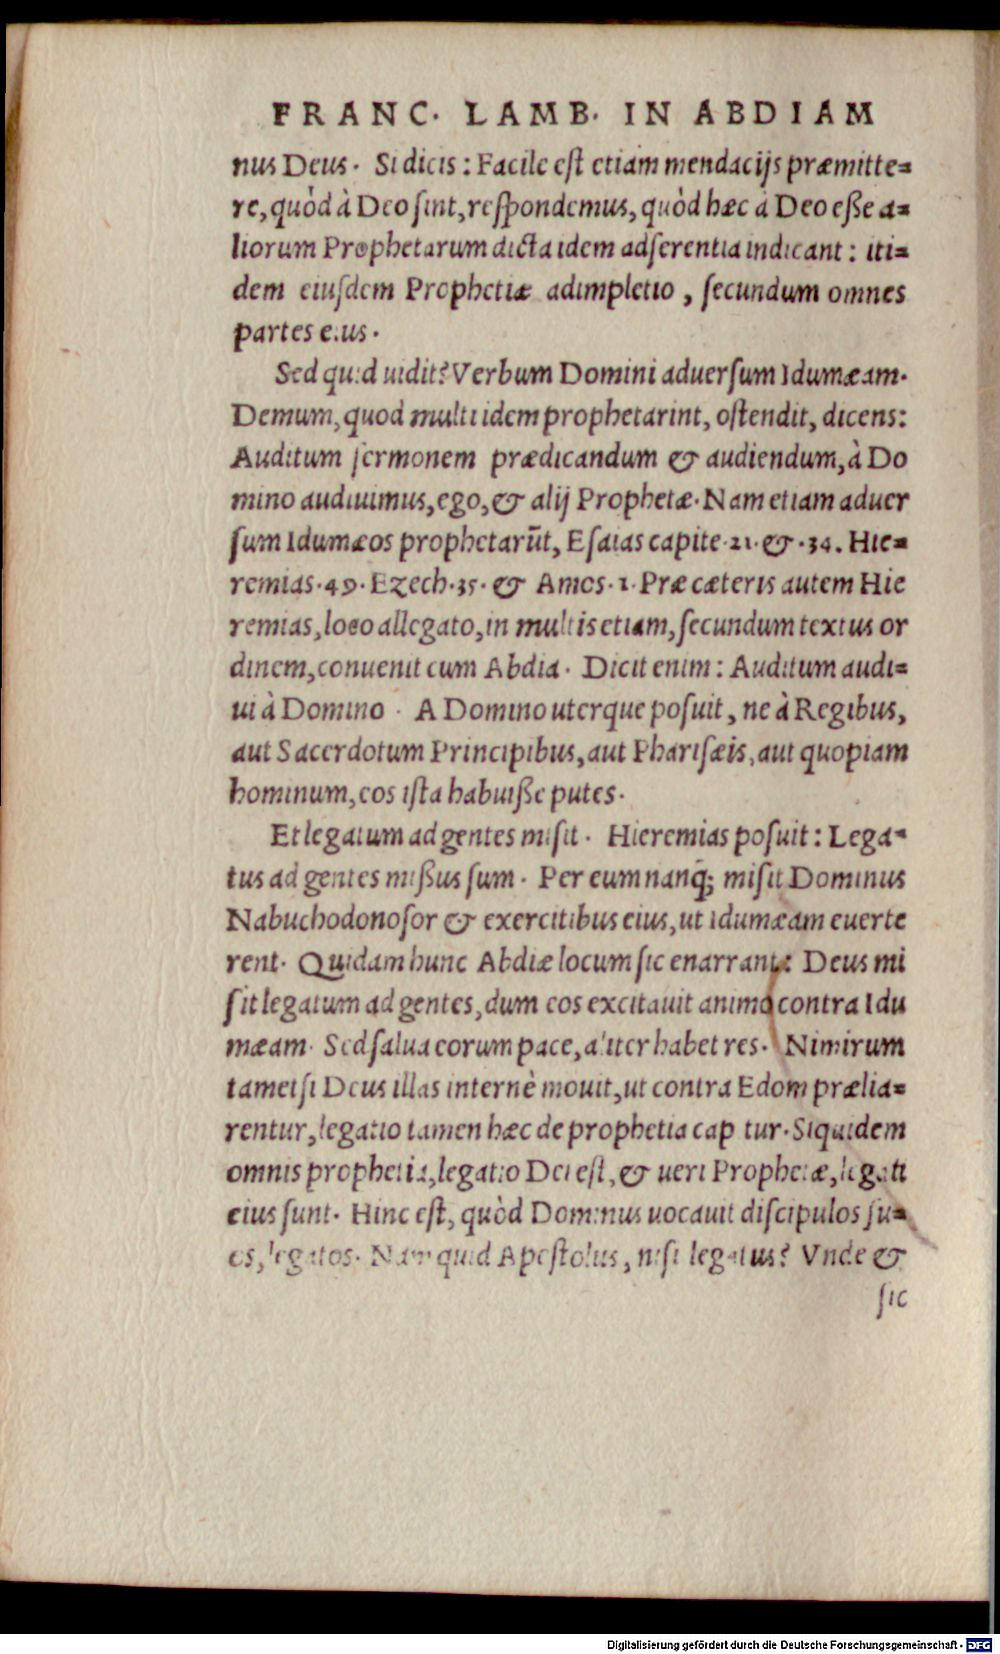 FRANC. LAMB. IN ABDIAM
nus Deus. Si dicis: Facile est etiam mendacijs præmitte=
re, quòd à Deo sint, respondemus, quòd hæc à Deo eße a=
liorum Prophetarum dicta idem adserentia indicant: iti=
dem eiusdem Prophetiæ adimpletio, secundum omnes
partes eius.
Sed quid uidit? Verbum Domini aduersum Idumæam.
Demum, quod multi idem prophetarint, ostendit, dicens:
Auditum sermonem prædicandum & audiendum, à Do
mino audiuimus, ego, & alij Prophetæ. Nam etiam aduer
sum Idumæos prophetarūt, Esaias capite .21. & .34. Hie=
remias .49. Ezech .35. & Amos .1. Præ cæteris autem Hie
remias, loco allegato, in multis etiam, secundum textus or
dinem, conuenit cum Abdia. Dicit enim: Auditum audi=
ui à Domino. A Domino uterque posuit, ne à Regibus,
aut Sacerdotum Principibus, aut Pharisæis, aut quopiam
hominum, eos ista habuiße putes.
Et legatum ad gentes misit. Hieremias posuit: Lega=
tus ad gentes mißus sum. Per eum nanq; misit Dominus
Nabuchodonosor & exercitibus eius, ut Idumæam euerte
rent. Quidam hunc Abdiæ locum sic enarrant: Deus mi
sit legatum ad gentes, dum eos excitauit animo contra Idu
mæam. Sed salua eorum pace, aliter habet res. Nimirum
tametsi Deus illas internè mouit, ut contra Edom prælia=
rentur, legatio tamen hæc de prophetia cap tur. Siquidem
omnis prophetia, legatio Dei est, & ueri Prophetæ, legati
eius sunt. Hinc est, quòd Dominus uocauit discipulos su=
os, legatos. Nam quid Apostolus, nisi legatus? Vnde &
sic
Digitalisierung gefördert durch die Deutsche Forschungsgemeinschaft - DFG